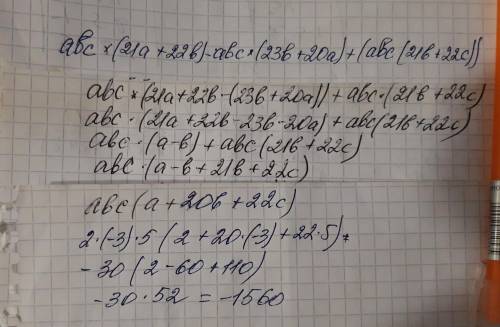 abc × (21a + 22b) - abc × (23b + 20a) + (abc (21b + 22c))
abc × (21a + 22b - (23b + 20a)) + abc · (21b + 22c)
abc · (21a + 22b - 23b - 20a) + abc (21b + 22c)
abc · (a - b) + abc (21b + 22c)
abc · (a - b + 21b + 22c)
abc (a + 20b + 22c)
2 · (-3) · 5 (2 + 20 · (-3) + 22 · 5) =
-30 (2 - 60 + 110)
-30 · 52 = -1560